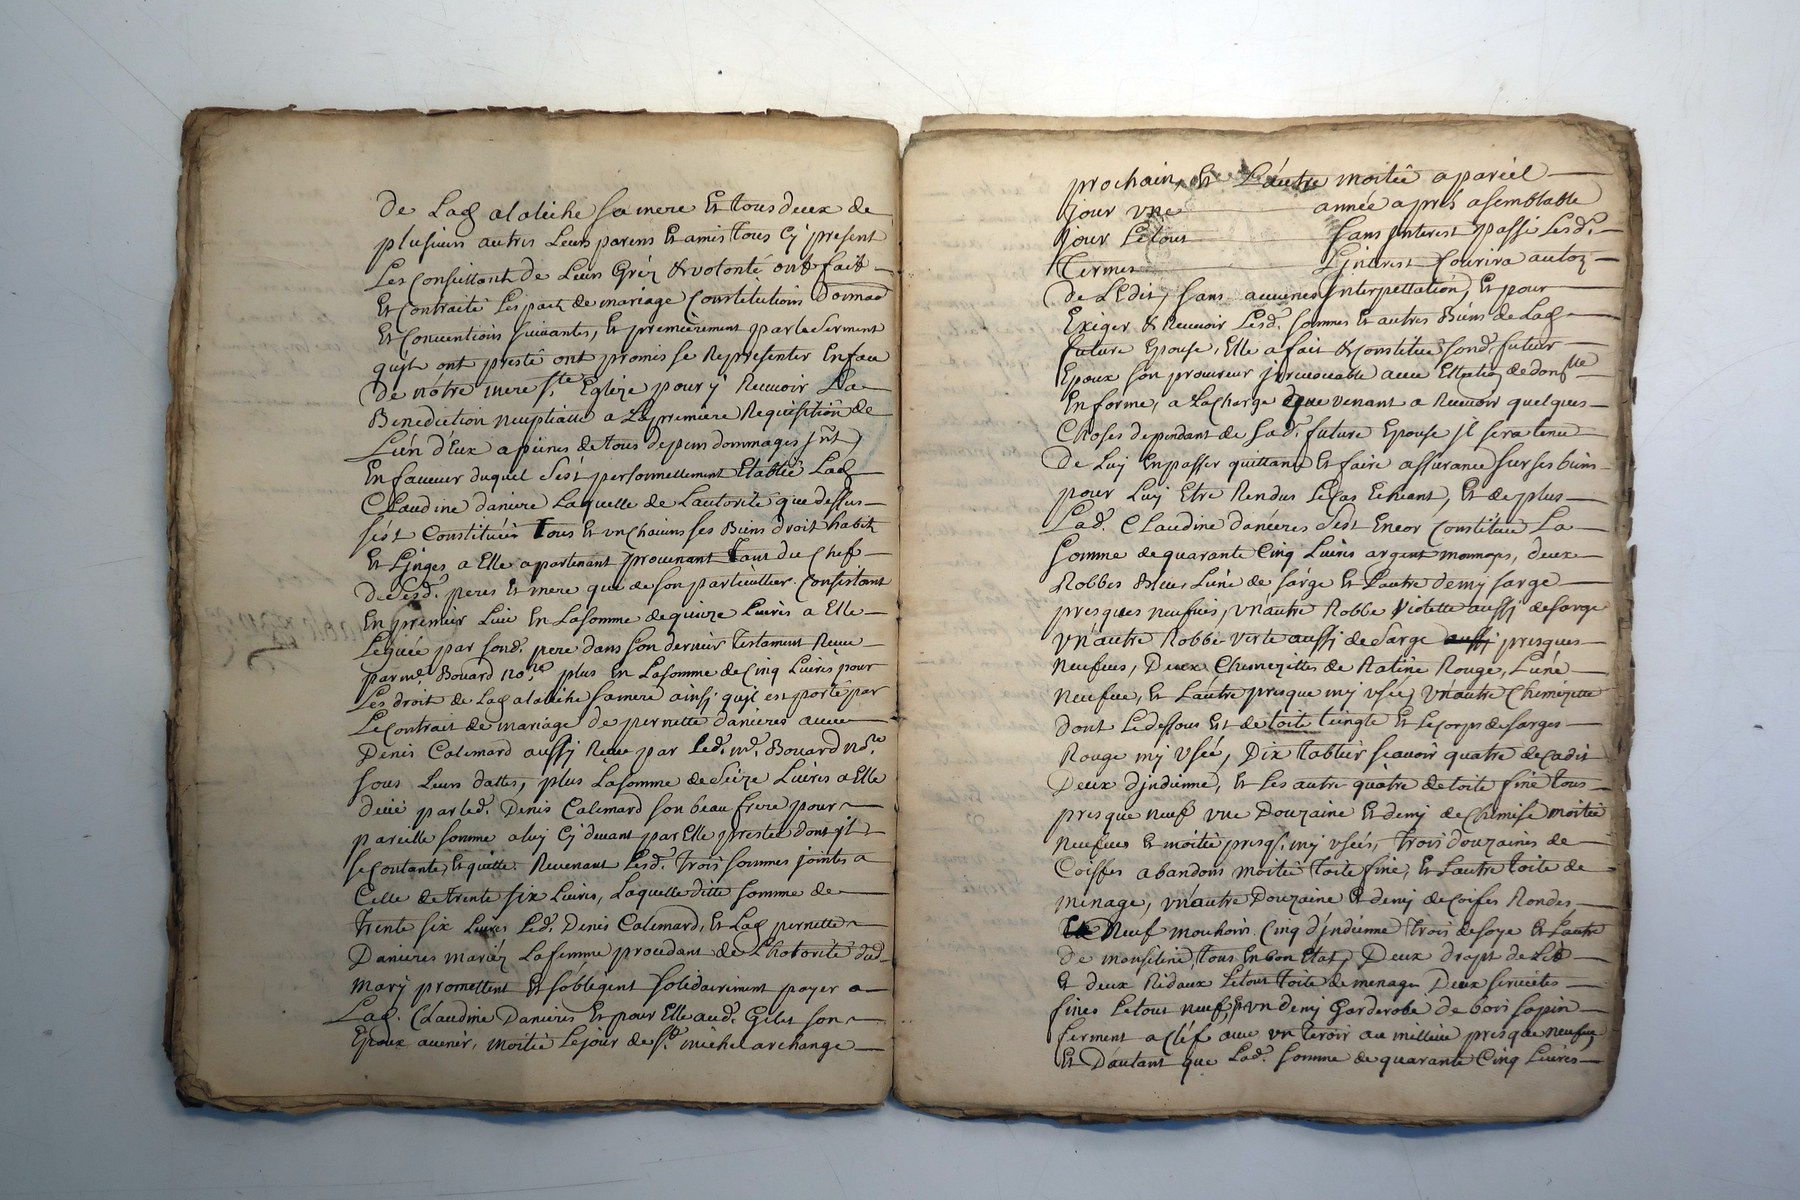 de Lad alaliche sa mere Et tous deux de
plusieurs autres Leurs parens Et amis tous Cy present
Les Consultant de Leurs Gréz & volonté ont fait
Et Contracté Les pact de mariage Constitutions
Et Conventions suivantes, Et premierement par le serment
qu'jls ont presté ont promis se Representer En face
De nôtre mere ste. Eglize pour y Recevoir La
Benediction neuptialle a La premiere Requisition de
L'ún d'Eux a peines de tous depens dommages jnt
En faveur duquel s'est personnellement Etablie Lad
Claudine daniere Laquelle de L'autorité que dessus
s'ést Constituée Tous Et un Chacuns ses Biens droit habit
Et Linges a Elle apartenant provenant Tant du Chef
de sesd. peres Et mere que de son particullier. Consistant
En premier Lieu En La somme de quinze Livres a Elle
Leguée par sond. pere dans son dernier Testament Receu
par me. Bouard nore. plus En La somme de Cinq Livres pour
Les droit de Lad alaliche sa mere ainsj qu'jl est porté par
Le Contrait de mariage de pernette danieres avec
Denis Calemard aussj Receu par Led. me. Bouard nore.
sous Leurs dattes, plus La somme de seize Livres a Elle
deüe par led. Denis Calemard son beau frere pour
pareille somme a luy Cy devant par Elle prestée dont jl
se Contante, Et quitte. Revenant Lesd. trois sommes jointes a
Celle de trente six Livres, Laquelle ditte somme de
Trente six Livres Led. Denis Calemard, Et Lad pernette
Danieres mariéz La femme procedant de L'hotorité dud.
mary promettent Et s'obligent solidairement payer a
Lad. Claudine Danieres Et pour Elle aud. Gilet son
Epoux avenir, moitié Le jour de st. michel archange
prochain, Et L'autre moitié a pariel
jour une année aprés a semblable
jour Le tout sans jnterest passé Lesd.
Termes L'jnterest Courira au toz
de L'Edit, sans aucunes jnterpellation, Et pour
Exiger & Recevoir Lesd. sommes Et autres Biens de Lad
future Epouse, Elle a fait & Constitué sond. futur
Epoux son procureur jrrevocable avec
En forme, a La Charge que venant a Recevoir quelques
Choses dependant de sad. future Epouse jl sera tenu
de Luy En passer quittance Et faire assurance sur ses biens
pour Luy Etre Rendus Le Cas Echeant, Et de plus
Lad. Claudine daniéres s'est Encor Constituée La
somme de quarante Cinq Livres argent monnoye, deux
Robbes bleu, L'úne de sarge Et L'autre demy sarge
presques neufves, un'autre Robbe violette aussj de sarge
un'autre Robbe verte aussj de sarge aussj presques
neufves, Deux Chemizettes de Ratine Rouge, L'úne
neufve, Et L'autre presque my usée, un'autre Chemizette
dont Le dessous Est de toile teingte Et le corps de sarges
Rouge my usée, Dix tablier sçavoir quatre de Cadis
Deux d'jndienne, Et Les autre quatre de toile fine tous
presque neuf une Douzaine Et demy de Chemise moitié
neufves Et moitié presq. my usées, Trois douzaines de
Coiffes abandons moitié toile fine, Et L'autre toile de
menage, un'autre Douzaine Et demy de Coifes Rondes
neuf mouchoirs Cinq d'jndienne trois de soye Et L'autre
de mousseline, tous En bon Etat, Deux drapt de Lit
Et deux Ridaux Le tout toile de menage Deux serviettes
fines Le tout neuf, Et un demy Garderobe de bois sapin
ferment a Cléf avec un tiroir au millieu presque neufve
Et D'autant que Lad. somme de quarante Cinq Livres